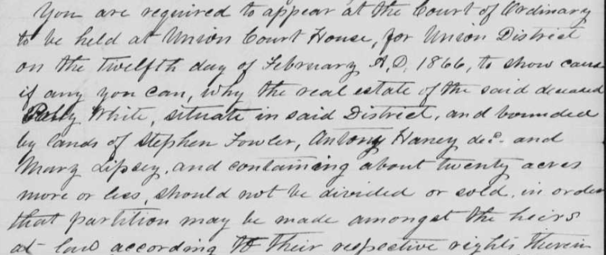 You are required to appear at the Court of Ordinary
to be held at Union Court House, for Union District
on the twelfth day of February A.D. 1866, to show cause
if any you can, why the real estate of the said deceased
White, situate in said District, and bounded
by lands of Stephen Fowler, Antony Haney dec. and
Mary Lipsey, and containing about twenty acres
more or less, should not be divided or sold, in order
that partition may be made amongst the heirs
at law according to their respective rights therein